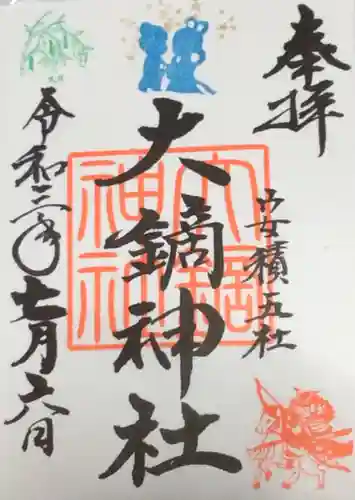 奉拝
安積五社
大鏑神社
大鏑神社
令和三年七月六日